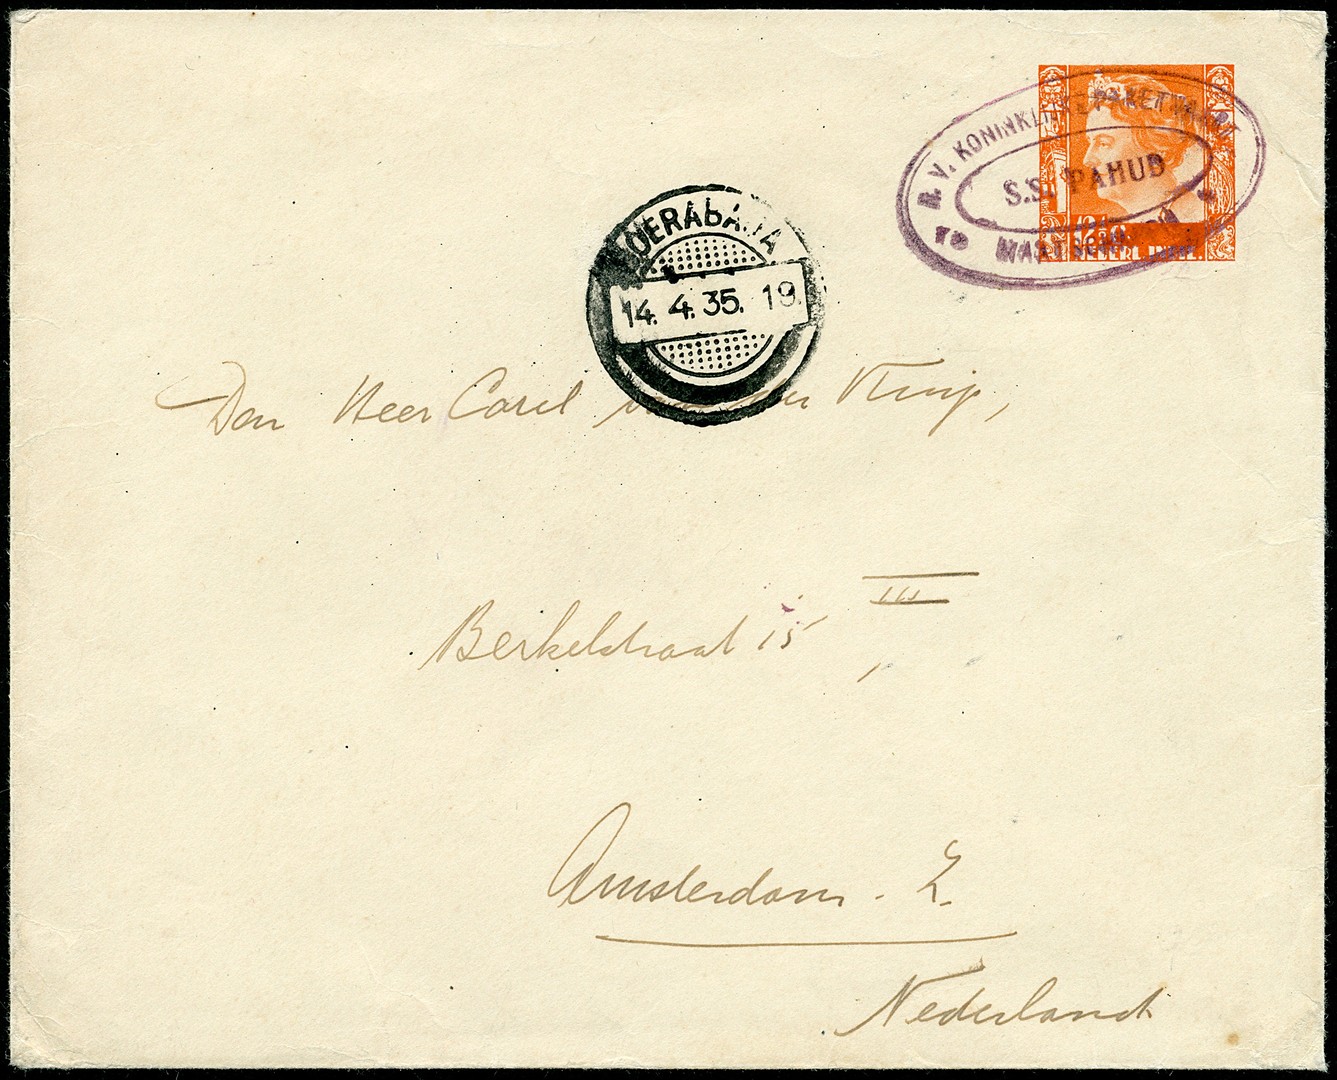 N.V. KONINKLIJKE PAKETVAART
S.S. PAHUD
NED. INDIE.
SOERABAJA
14. 4. 35. 19.
Den Heer Carel van der
Berkelstraat 15 III,
Amsterdam. Z.
Nederland